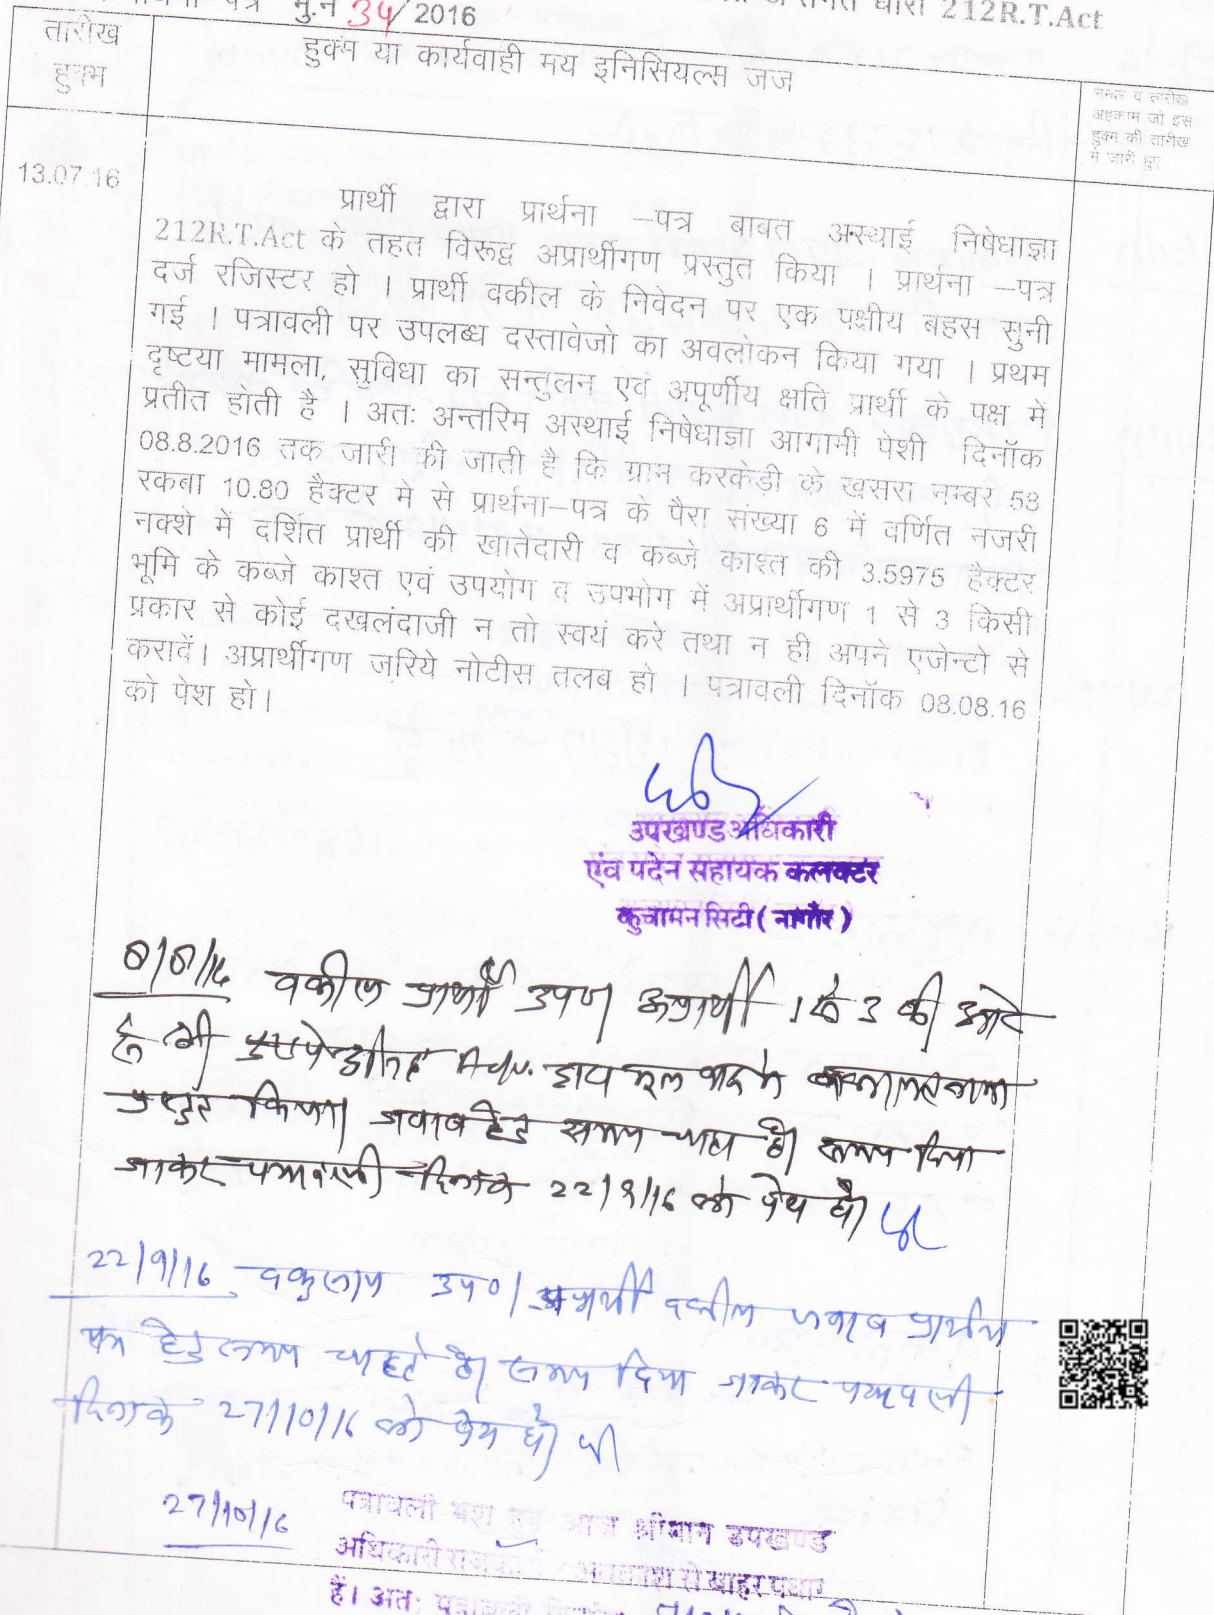 मु.न 34/2016
212R.T.Act
तारीख
हुक्म
हुक्म या कार्यवाही मय इनिसियल्स जज
नम्बर व तारीख
अहकाम जो इस
हुक्म की तारीख
में जारी हुए
13.07.16
प्रार्थी द्वारा प्रार्थना –पत्र बाबत अस्थाई निषेधाज्ञा
212R.T.Act के तहत विरूद्व अप्रार्थीगण प्रस्तुत किया । प्रार्थना –पत्र
दर्ज रजिस्टर हो । प्रार्थी वकील के निवेदन पर एक पक्षीय बहस सुनी
गई । पत्रावली पर उपलब्ध दस्तावेजो का अवलोकन किया गया । प्रथम
दृष्टया मामला, सुविधा का सन्तुलन एवं अपूर्णीय क्षति प्रार्थी के पक्ष में
प्रतीत होती है । अतः अन्तरिम अस्थाई निषेधाज्ञा आगामी पेशी दिनॉक
08.8.2016 तक जारी की जाती है कि ग्राम करकेडी के खसरा नम्बर 58
रकबा 10.80 हैक्टर मे से प्रार्थना–पत्र के पैरा संख्या 6 में वर्णित नजरी
नक्शे में दर्शित प्रार्थी की खातेदारी व कब्जे काश्त की 3.5975 हैक्टर
भूमि के कब्जे काश्त एवं उपयोग व उपभोग में अप्रार्थीगण 1 से 3 किसी
प्रकार से कोई दखलंदाजी न तो स्वयं करे तथा न ही अपने एजेन्टो से
करावें। अप्रार्थीगण जरिये नोटीस तलब हो । पत्रावली दिनॉक 08.08.16
को पेश हो।
उपखण्ड अधिकारी
एंव पदेन सहायक कलक्टर
कुचामन सिटी ( नागौर )
8/8/16 वकील प्रार्थी उप0 अप्रार्थी 1 से 3 की ओर
से श्री Adv. मूल वाद में वकालतनामा
प्रस्तुत किया। जवाब हेतु समय चाहा है। समय दिया
जाकर पत्रावली दिनांक 22/9/16 को पेश हो।
22/9/16 वकुलाय उप0। अप्रार्थी वकील जवाब प्रार्थना
पत्र हेतु समय चाहते है। समय दिया जाकर पत्रावली
दिनांक 27/10/16 को पेश हो।
27/10/16 पत्रावली पेश हुई आज श्रीमान उपखण्ड
अधिकारी अवकाश से बाहर पधारे
हैं। अतः पत्रावली